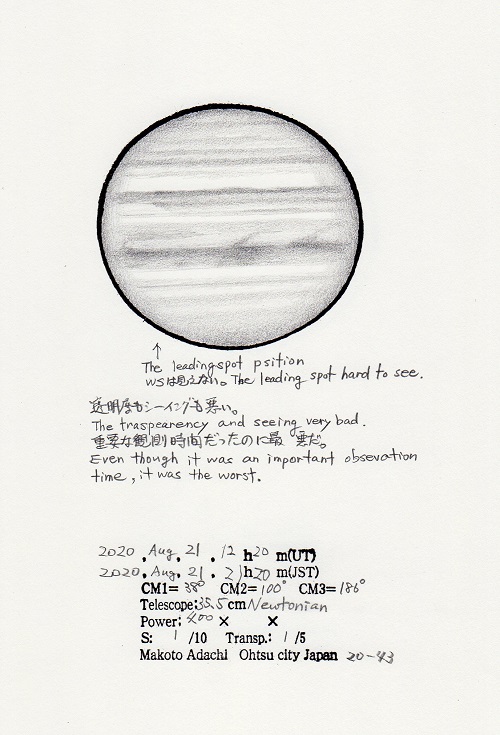 ↑
The leadingspot psition
WSは見えない。The leading spot hard to see.
透明度もシーイングも悪い。
The trasperency and seeing very bad.
重要な観測時間だったのに最悪だ。
Even though it was an important obsevation
time, it was the worst.
2020. Aug. 21. 12 h 20 m(UT)
2020. Aug. 21. 21 h 20 m(JST)
CM1= 38° CM2= 100° CM3= 186°
Telescope: 35.5 cm Newtonian
Power: 400 × ×
S: 1 /10 Transp.: 1 /5
Makoto Adachi Ohtsu city Japan 20-43